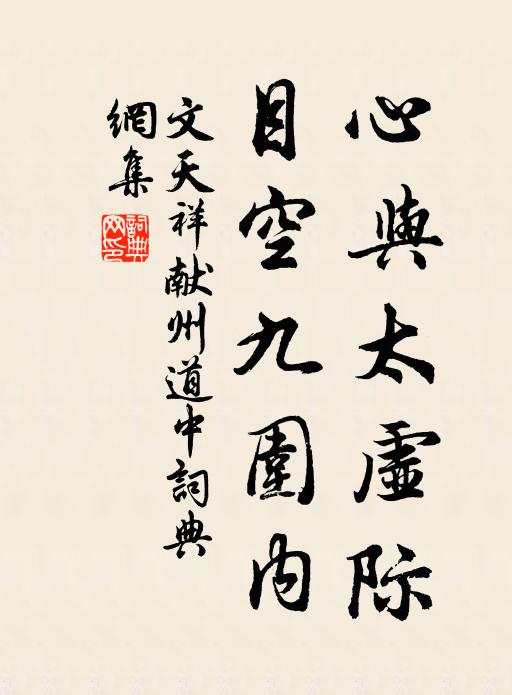 心與太虛际
目空九圍内
文天祥献州道中詞典
網集
詞典网印